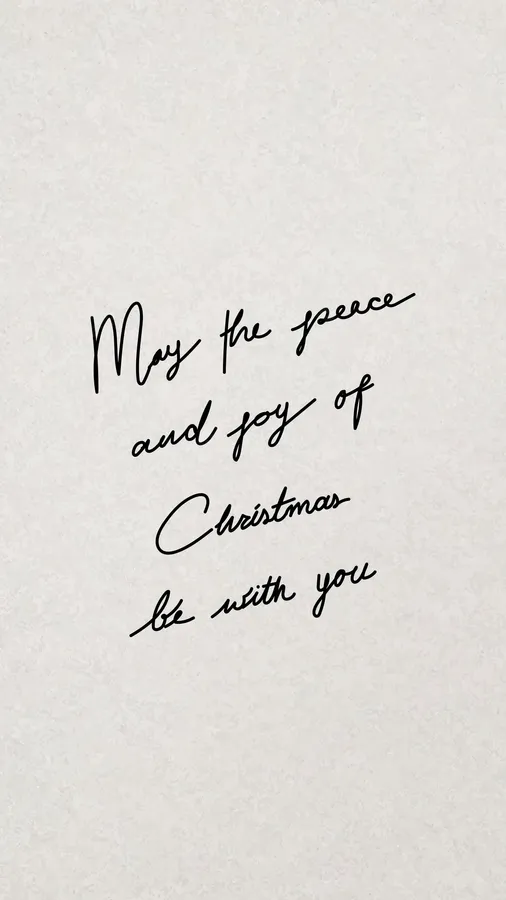 May the peace
and joy of
Christmas
be with you